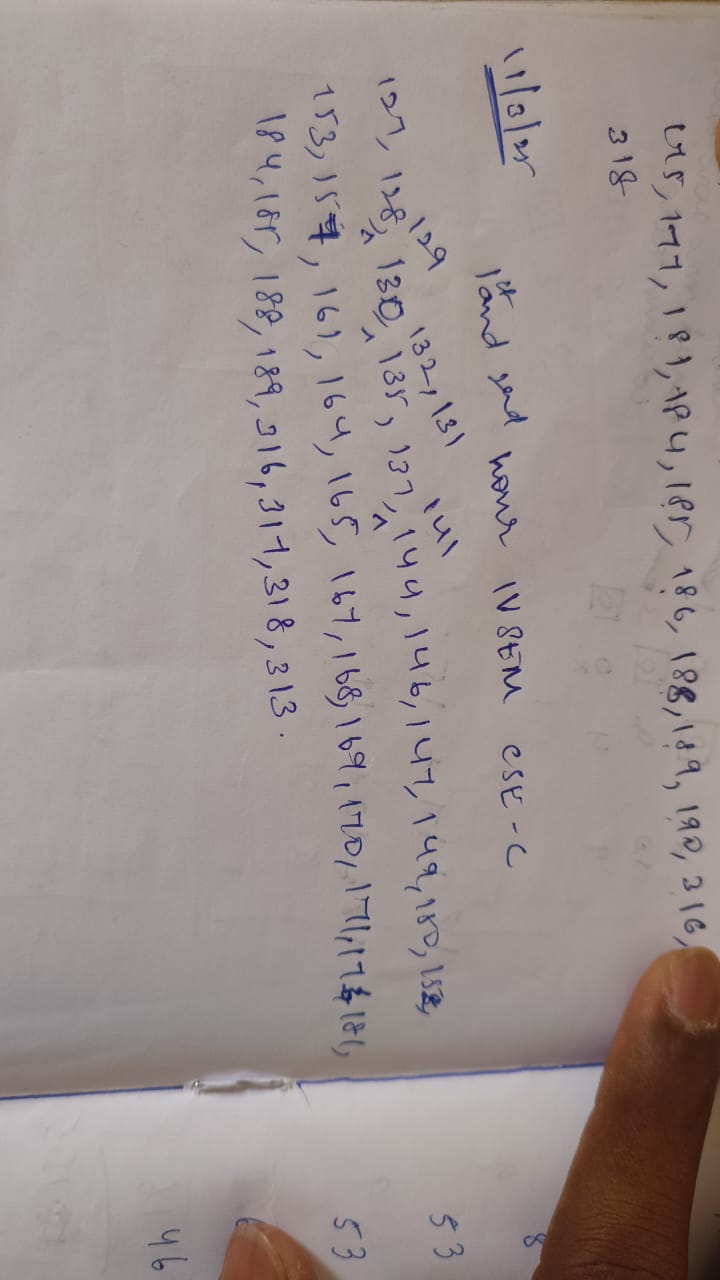 175, 177, 181, 184, 185, 186, 188, 189, 190, 316,
318
11/3/25
1st and 2nd hour IV SEM CSE-C
129 132, 131 141
127, 128, 130, 135, 137, 144, 146, 147, 149, 150, 152,
153, 157, 161, 164, 165, 167, 168, 169, 170, 171, 181,
184, 185, 188, 189, 316, 317, 318, 313.
8
53
53
46